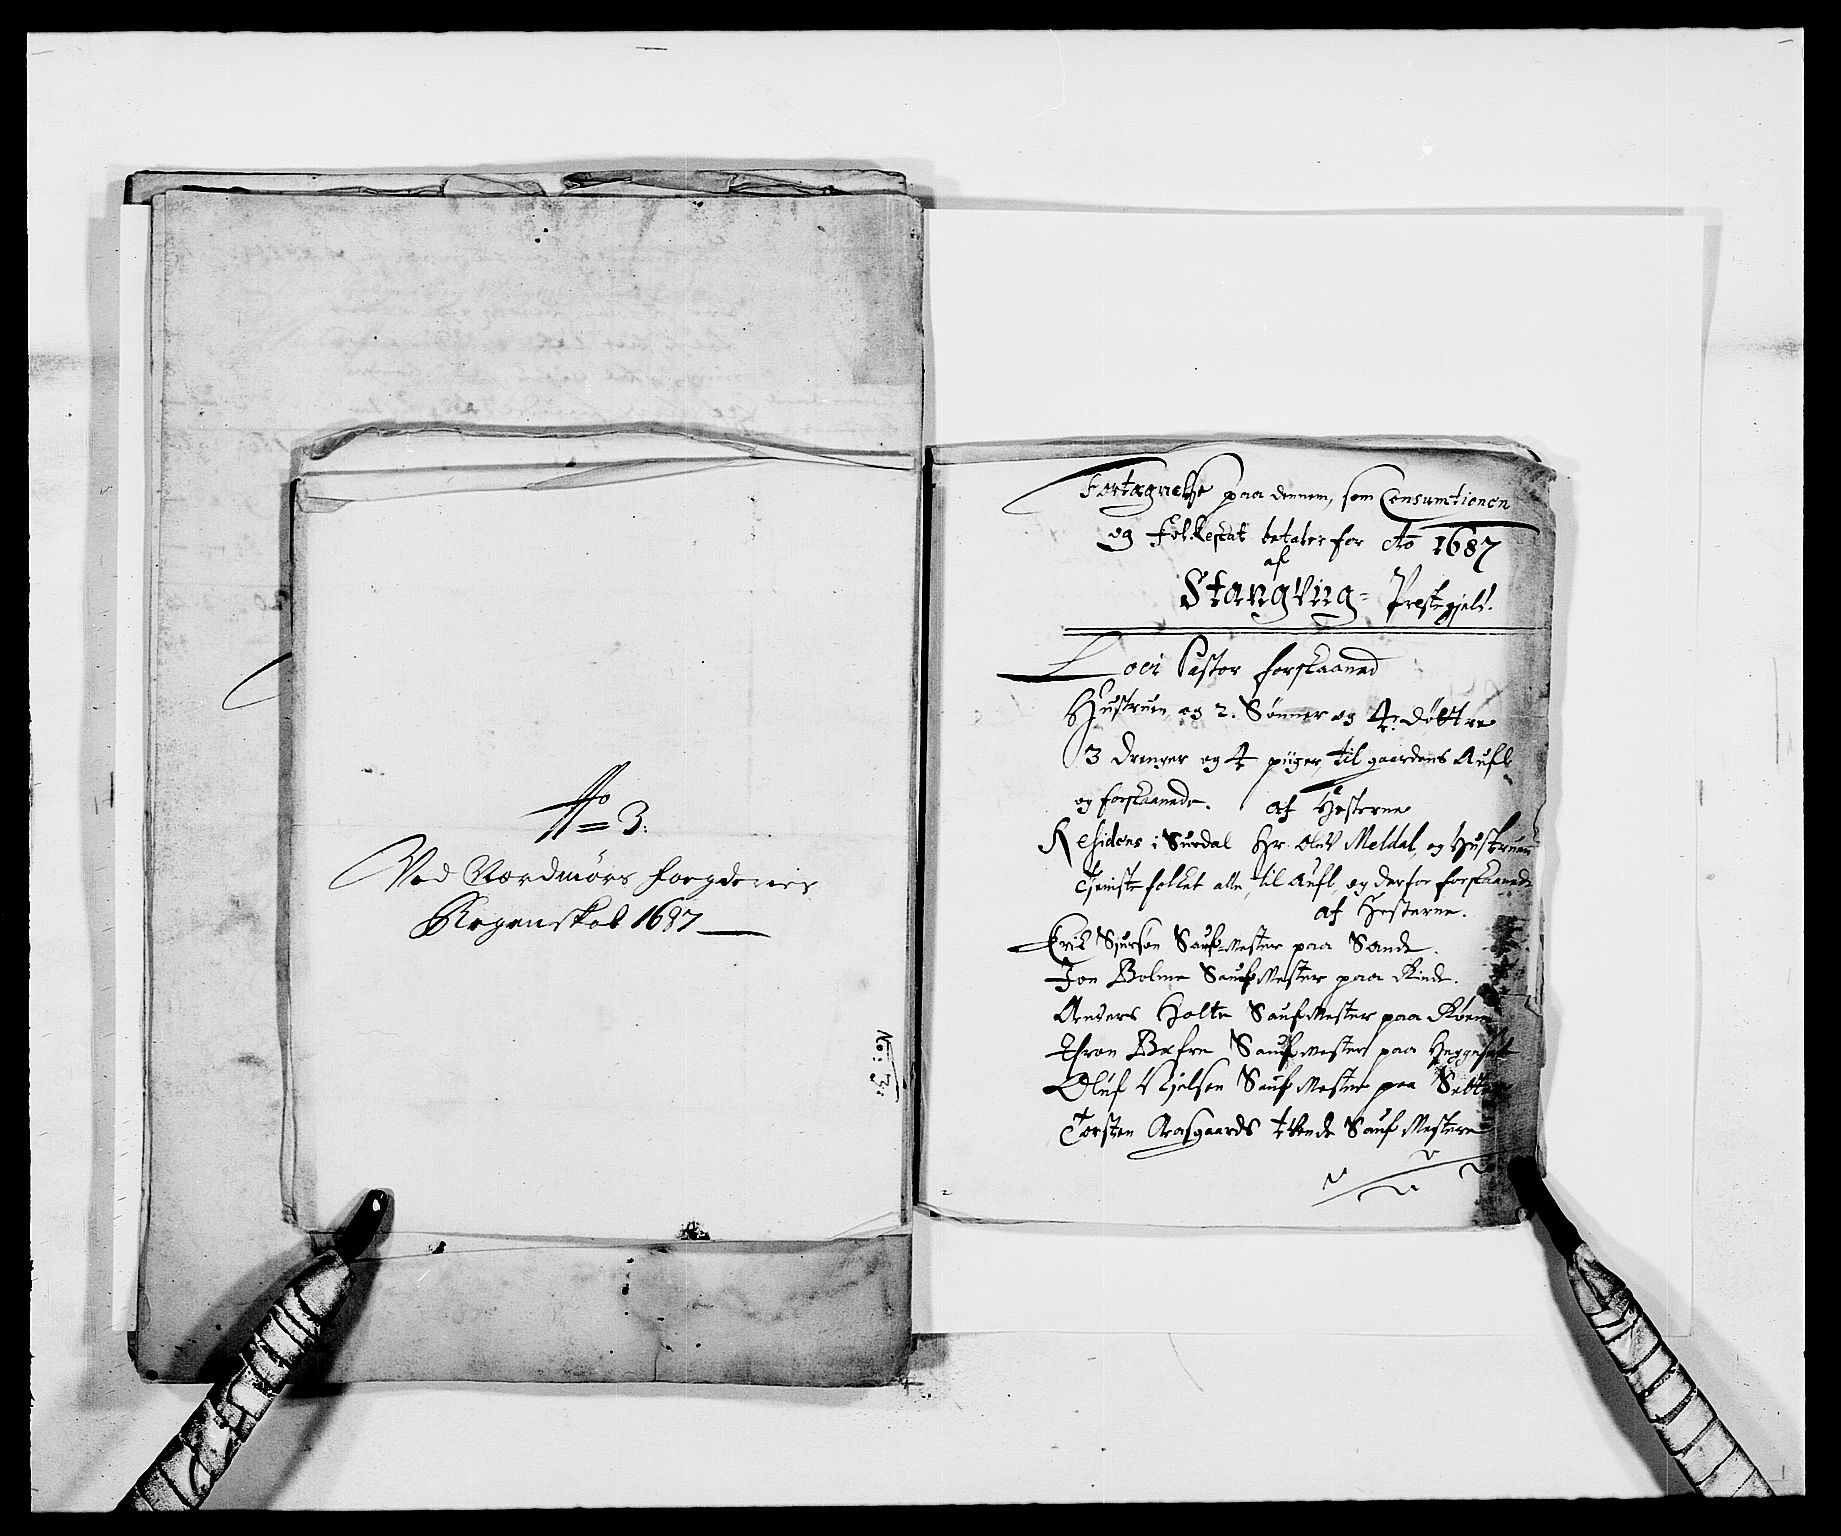 No 3:
Ved Nordmørs fogderies
Regenskab 1687
No: 3:
Fortegnelse paa dennem, som Consumtionen
og Folkeskat betaler for Ao 1687
af
Stangviig= Prestegjeld.
Loci Pastor forskaaned
Hustruen og 2. Sønner og 4. døttre
3 drenger og 4 piiger, til gaardens Aufl
og forskaanede. af Hesterne
Residens i Surdal Hr. Oluf Meldal, og Hustruen
Tjeniste folket alle til Aufl og derfor forskaanede
af Hesterne.
Erik Sjursøn Saugmester paa Sande.
Jon Bolme Saugmester paa Rinde.
Anders Holte Saugmester paa
Thron Bæfre Saugmester paa
Oluf Njelsen Saugmester paa
Torsten Aasgaards tvende Saugmestere